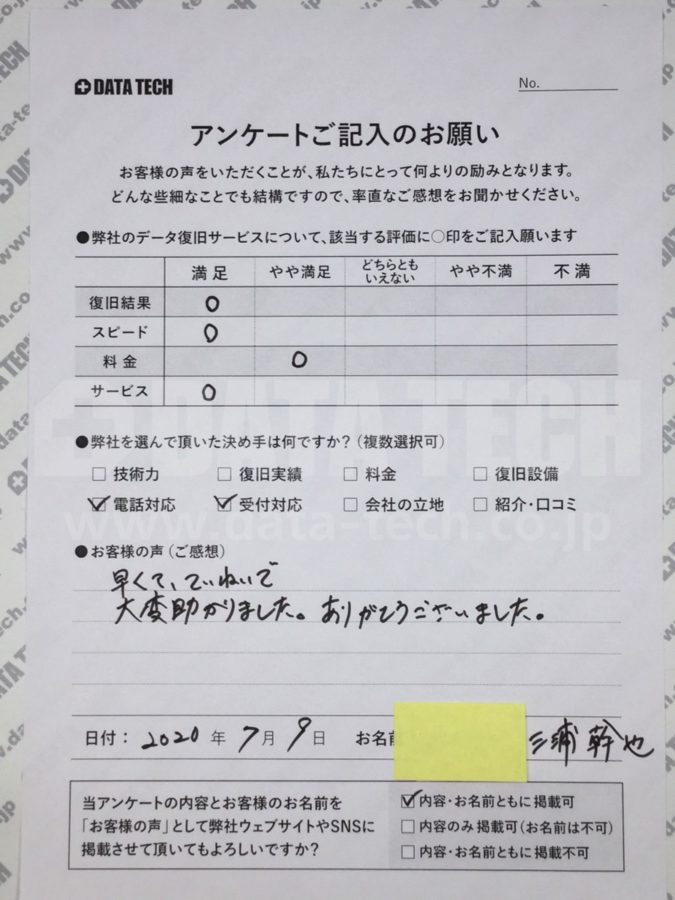 DATA TECH
No.
アンケートご記入のお願い
お客様の声をいただくことが、私たちにとって何よりの励みとなります。
どんな些細なことでも結構ですので、率直なご感想をお聞かせください。
●弊社のデータ復旧サービスについて、該当する評価に○印をご記入願います
満足 やや満足 どちらともいえない やや不満 不満
復旧結果 ○
スピード ○
料金 ○
サービス ○
DATA TECH
●弊社を選んで頂いた決め手は何ですか?(複数選択可)
□ 技術力 □ 復旧実績 □ 料金 □ 復旧設備
☑ 電話対応 ☑ 受付対応 □ 会社の立地 □ 紹介・口コミ
www.data-tech.co.jp
●お客様の声(ご感想)
早くて、ていねいで
大変助かりました。ありがとうございました。
日付: 2020 年 7 月 9 日 お名前 三浦幹也
当アンケートの内容とお客様のお名前を
「お客様の声」として弊社ウェブサイトやSNSに
掲載させて頂いてもよろしいですか?
☑ 内容・お名前ともに掲載可
□ 内容のみ掲載可(お名前は不可)
□ 内容・お名前ともに掲載不可